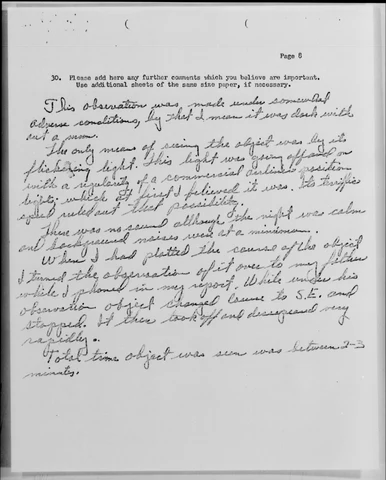 Page 8
30. Please add here any further comments which you believe are important.
Use additional sheets of the same size paper, if necessary.
This observation was made under somewhat
adverse conditions, by that I mean it was dark with
out a moon.
The only means of seeing the object was by its
flickering light. This light was going off and on
with a regularity of a commercial airliners position
lights, which at first I believed it was. Its terrific
speed ruled out that possibility.
There was no sound although the night was calm
and background noises were at a minimum.
When I had plotted the course of the object
I turned the observation of it over to my father
while I phoned in my report. While under his
observation object changed course to S.E. and
stopped. It then took off and disappeared very
rapidly.
Total time object was seen was between 2-3
minutes.